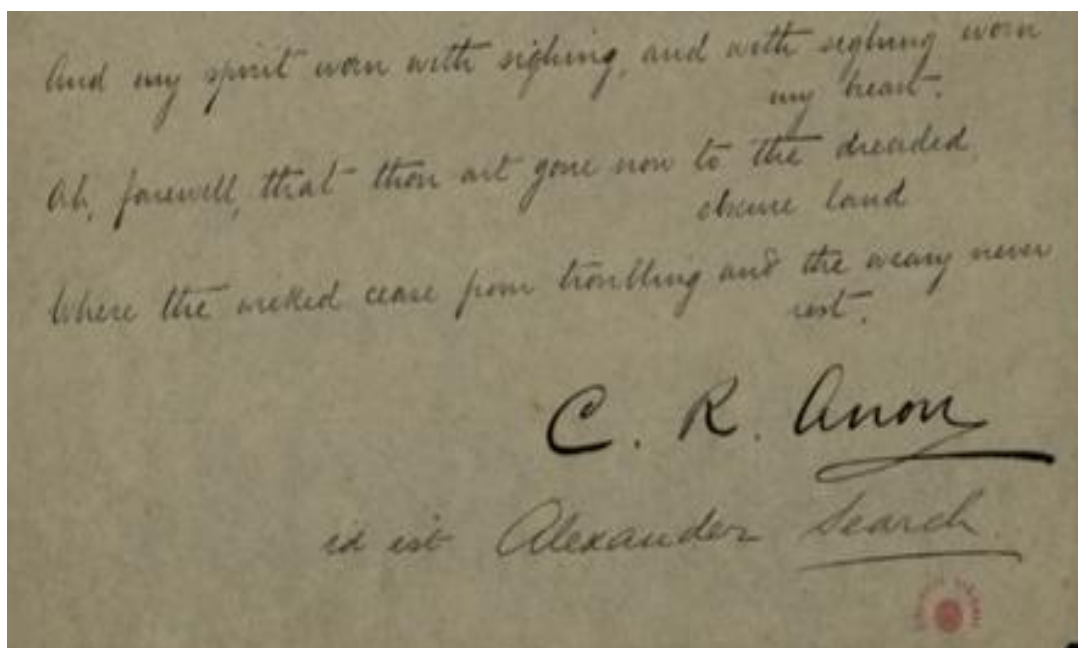 And my spirit worn with sighing, and with sighing worn
my heart.
Ah, farewell, that thou art gone now to the dreaded,
obscure land
Where the wicked cease from troubling and the weary never
rest.
C. R. Anon
id est Alexander Search.